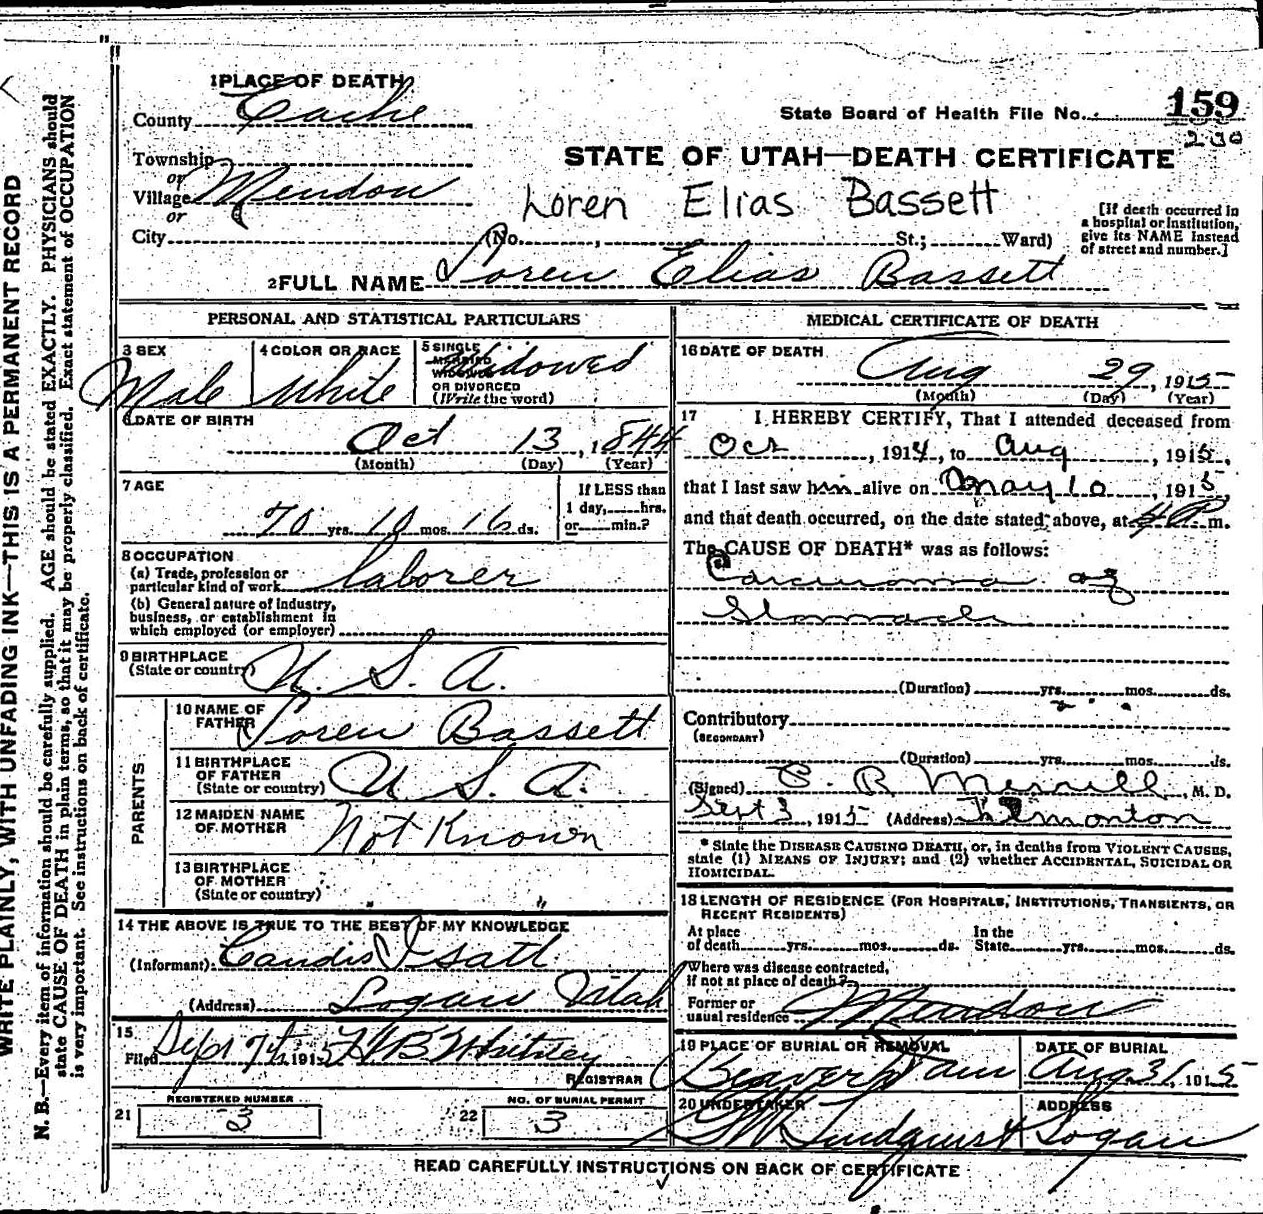 1 PLACE OF DEATH
County Cache
State Board of Health File No. 159
230
Township
or
Village Mendon
or
City
STATE OF UTAH—DEATH CERTIFICATE
Loren Elias Bassett
(No. , St.; Ward)
[If death occurred in
a hospital or institution,
give its NAME instead
of street and number.]
2 FULL NAME Loren Elias Bassett
PERSONAL AND STATISTICAL PARTICULARS
3 SEX
Male
4 COLOR OR RACE
White
5 SINGLE
MARRIED
WIDOWED
OR DIVORCED
(Write the word)
Widowed
6 DATE OF BIRTH
Oct 13, 1844
(Month) (Day) (Year)
7 AGE
70 yrs. 10 mos. 16 ds.
If LESS than
1 day, hrs.
or min.?
8 OCCUPATION
(a) Trade, profession or
particular kind of work laborer
(b) General nature of industry,
business, or establishment in
which employed (or employer)
9 BIRTHPLACE
(State or country) U. S. A.
PARENTS
10 NAME OF
FATHER Loren Bassett
11 BIRTHPLACE
OF FATHER
(State or country) U. S. A.
12 MAIDEN NAME
OF MOTHER Not Known
13 BIRTHPLACE
OF MOTHER
(State or country) " "
14 THE ABOVE IS TRUE TO THE BEST OF MY KNOWLEDGE
(Informant)
(Address) Logan Utah
15
Filed Sept 7th, 1915 Whitney
REGISTRAR
REGISTERED NUMBER
21 3
NO. OF BURIAL PERMIT
22 3
MEDICAL CERTIFICATE OF DEATH
16 DATE OF DEATH
Aug 29, 1915
(Month) (Day) (Year)
17 I HEREBY CERTIFY, That I attended deceased from
Oct, 1914, to Aug, 1915,
that I last saw him alive on May 10, 1915
and that death occurred, on the date stated above, at 4 P m.
The CAUSE OF DEATH* was as follows:
Carcinoma of
Stomach
(Duration) yrs. mos. ds.
Contributory
(SECONDARY)
(Duration) yrs. mos. ds.
(Signed) R Merrill, M. D.
Sept 3, 1915 (Address) Tremonton
* State the DISEASE CAUSING DEATH, or, in deaths from VIOLENT CAUSES,
state (1) MEANS OF INJURY; and (2) whether ACCIDENTAL, SUICIDAL OR
HOMICIDAL.
18 LENGTH OF RESIDENCE (FOR HOSPITALS, INSTITUTIONS, TRANSIENTS, OR
RECENT RESIDENTS)
At place
of death yrs. mos. ds.
In the
State yrs. mos. ds.
Where was disease contracted,
if not at place of death?
Former or
usual residence Mendon
19 PLACE OF BURIAL OR REMOVAL
Beaver Dam
DATE OF BURIAL
Aug 31, 1915
20 UNDERTAKER
Lindquist
ADDRESS
Logan
READ CAREFULLY INSTRUCTIONS ON BACK OF CERTIFICATE
WRITE PLAINLY, WITH UNFADING INK—THIS IS A PERMANENT RECORD
N. B.—Every item of information should be carefully supplied. AGE should be stated EXACTLY. PHYSICIANS should
state CAUSE OF DEATH in plain terms, so that it may be properly classified. Exact statement of OCCUPATION
is very important. See instructions on back of certificate.